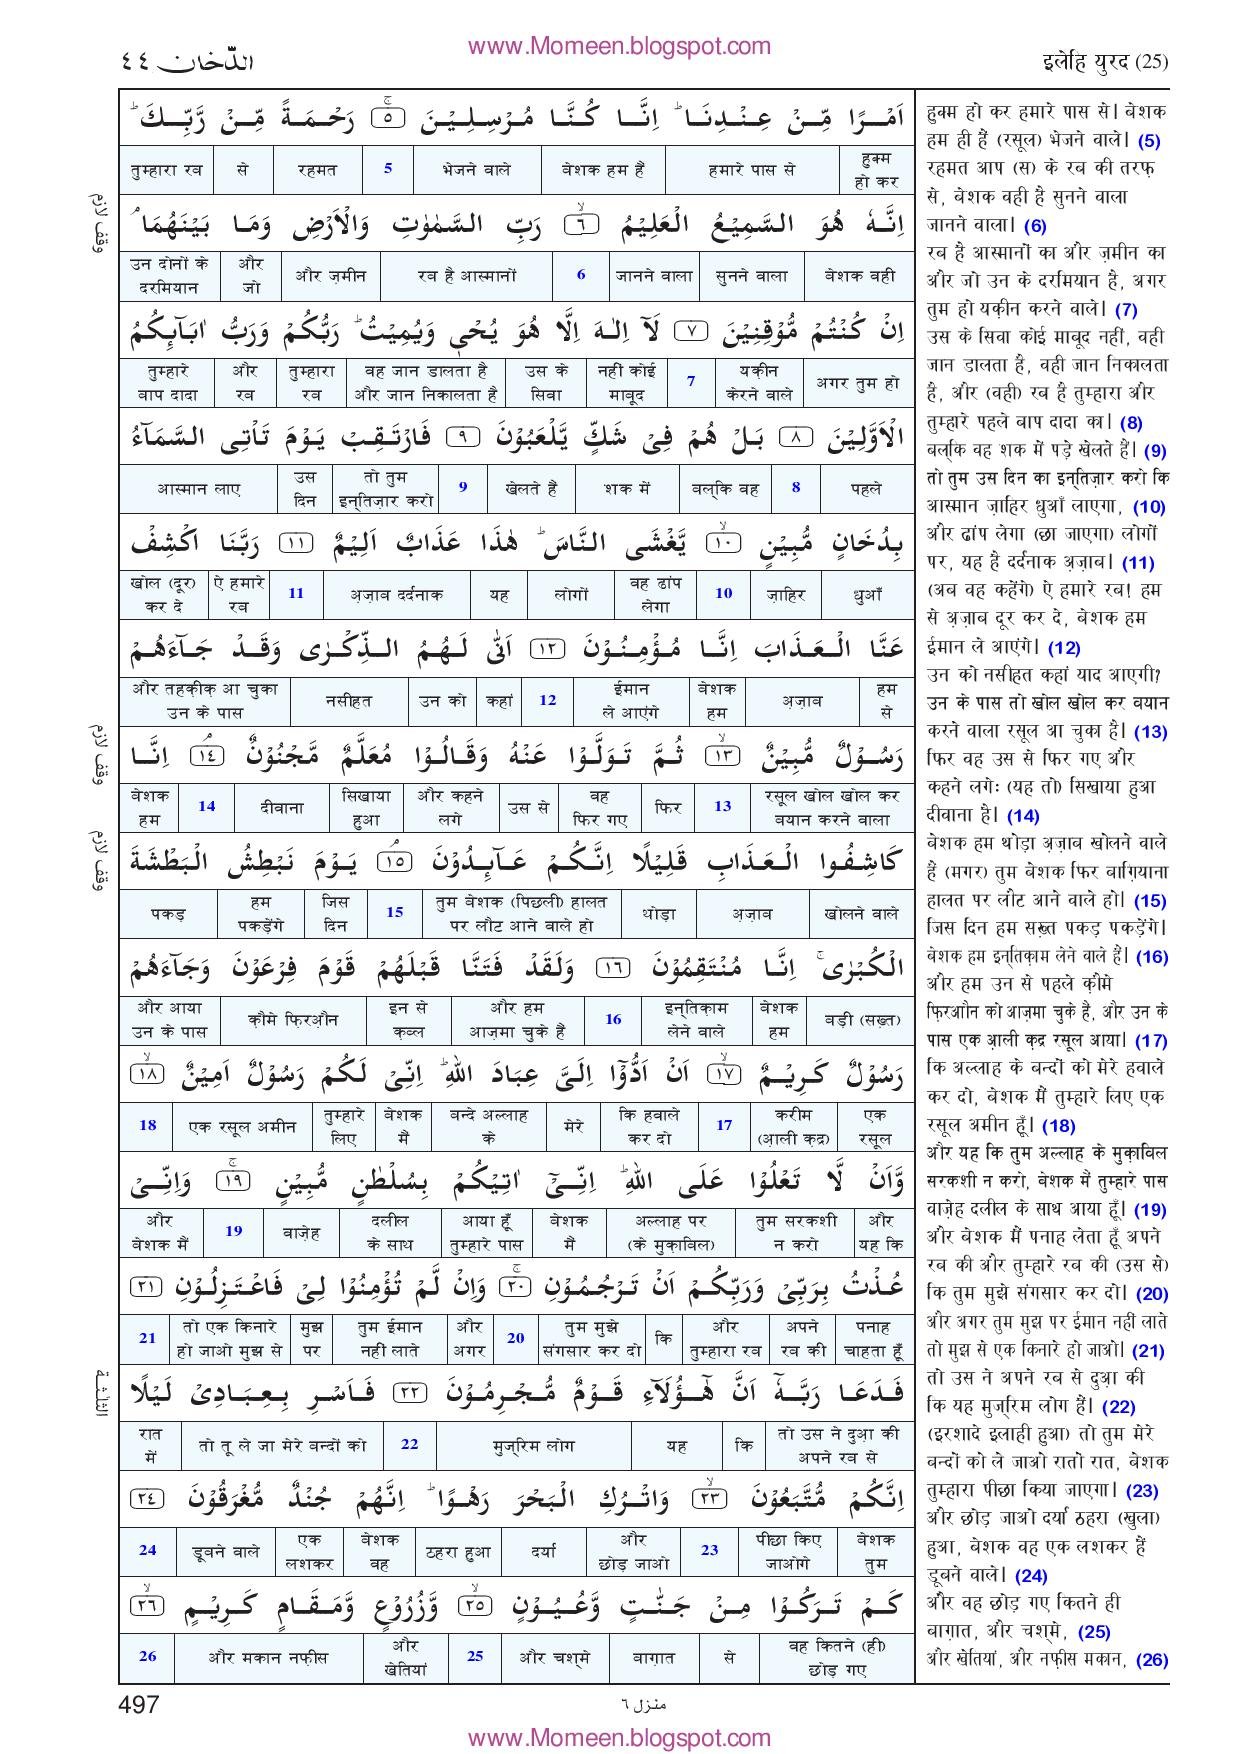 www.Momeen.blogspot.com
الدّخان ٤٤
इलेहि युरद (25)
اَمۡرًا مِّنۡ عِنۡدِنَا ؕ اِنَّا كُنَّا مُرۡسِلِيۡنَ ۚ ٥ رَحۡمَةً مِّنۡ رَّبِّكَ ؕ
हुक्म हो कर हमारे पास से बेशक हम हैं भेजने वाले 5 रहमत से तुम्हारा रब
اِنَّهٗ هُوَ السَّمِيۡعُ الۡعَلِيۡمُ ۙ ٦ رَبِّ السَّمٰوٰتِ وَالۡاَرۡضِ وَمَا بَيۡنَهُمَا ۘ
वقف لازم
बेशक वही सुनने वाला जानने वाला 6 रब है आस्मानों और ज़मीन और जो उन दोनों के दरमियान
اِنۡ كُنۡتُمۡ مُّوۡقِنِيۡنَ ٧ لَاۤ اِلٰهَ اِلَّا هُوَ يُحۡىٖ وَيُمِيۡتُ ؕ رَبُّكُمۡ وَرَبُّ اٰبَآٮِٕكُمُ
अगर तुम हो यक़ीन करेने वाले 7 नहीं कोई माबूद उस के सिवा वह जान डालता है और जान निकालता है तुम्हारा रब और रब तुम्हारे बाप दादा
الۡاَوَّلِيۡنَ ٨ بَلۡ هُمۡ فِىۡ شَكٍّ يَّلۡعَبُوۡنَ ٩ فَارۡتَقِبۡ يَوۡمَ تَاۡتِى السَّمَآءُ
पहले 8 बल्कि वह शक में खेलते हैं 9 तो तुम इन्तिज़ार करो उस दिन आस्मान लाए
بِدُخَانٍ مُّبِيۡنٍ ۙ ١٠ يَّغۡشَى النَّاسَ ؕ هٰذَا عَذَابٌ اَلِيۡمٌ ١١ رَبَّنَا اكۡشِفۡ
धुआँ ज़ाहिर 10 वह ढांप लेगा लोगों यह अ़ज़ाब दर्दनाक 11 ऐ हमारे रब खोल (दूर) कर दे
عَنَّا الۡعَذَابَ اِنَّا مُؤۡمِنُوۡنَ ١٢ اَنّٰى لَهُمُ الذِّكۡرٰى وَقَدۡ جَآءَهُمۡ
हम से अ़ज़ाब बेशक हम ईमान ले आएंगे 12 कहां उन को नसीहत और तहक़ीक़ आ चुका उन के पास
رَسُوۡلٌ مُّبِيۡنٌ ۙ ١٣ ثُمَّ تَوَلَّوۡا عَنۡهُ وَقَالُوۡا مُعَلَّمٌ مَّجۡنُوۡنٌ ۘ ١٤ اِنَّا
وقف لازم
रसूल खोल खोल कर बयान करने वाला 13 फिर वह फिर गए उस से और कहने लगे सिखाया हुआ दीवाना 14 बेशक हम
كَاشِفُوا الۡعَذَابِ قَلِيۡلًا اِنَّكُمۡ عَآٮِٕدُوۡنَ ۘ ١٥ يَوۡمَ نَبۡطِشُ الۡبَطۡشَةَ
وقف لازم
खोलने वाले अ़ज़ाब थोड़ा तुम बेशक (पिछली) हालत पर लौट आने वाले हो 15 जिस दिन हम पकड़ेंगे पकड़
الۡكُبۡرٰى ۚ اِنَّا مُنۡتَقِمُوۡنَ ١٦ وَلَقَدۡ فَتَنَّا قَبۡلَهُمۡ قَوۡمَ فِرۡعَوۡنَ وَجَآءَهُمۡ
बड़ी (सख़्त) बेशक हम इन्तिक़ाम लेने वाले 16 और हम आज़मा चुके हैं इन से क़ब्ल क़ौमे फ़िरऔ़न और आया उन के पास
رَسُوۡلٌ كَرِيۡمٌ ۙ ١٧ اَنۡ اَدُّوۡۤا اِلَىَّ عِبَادَ اللّٰهِ ؕ اِنِّىۡ لَكُمۡ رَسُوۡلٌ اَمِيۡنٌ ۙ ١٨
एक रसूल करीम (आ़ली क़द्र) 17 कि हवाले कर दो मेरे बन्दे अल्लाह के बेशक मैं तुम्हारे लिए एक रसूल अमीन 18
وَّاَنۡ لَّا تَعۡلُوۡا عَلَى اللّٰهِ ؕ اِنِّىۡۤ اٰتِيۡكُمۡ بِسُلۡطٰنٍ مُّبِيۡنٍ ۚ ١٩ وَاِنِّىۡ
और यह कि तुम सरकशी न करो अल्लाह पर (के मुक़ाबिल) बेशक मैं आया हूँ तुम्हारे पास दलील के साथ वाज़ेह 19 और बेशक मैं
عُذۡتُ بِرَبِّىۡ وَرَبِّكُمۡ اَنۡ تَرۡجُمُوۡنِ ۚ ٢٠ وَاِنۡ لَّمۡ تُؤۡمِنُوۡا لِىۡ فَاعۡتَزِلُوۡنِ ٢١
पनाह चाहता हूँ अपने रब की और तुम्हारा रब कि तुम मुझे संगसार कर दो 20 और अगर तुम ईमान नहीं लाते मुझ पर तो एक किनारे हो जाओ मुझ से 21
فَدَعَا رَبَّهٗۤ اَنَّ هٰٓؤُلَآءِ قَوۡمٌ مُّجۡرِمُوۡنَ ٢٢ فَاَسۡرِ بِعِبَادِىۡ لَيۡلًا
الثلٰثة
तो उस ने दुआ़ की अपने रब से कि यह मुज्रिम लोग 22 तो तू ले जा मेरे बन्दों को रात में
اِنَّكُمۡ مُّتَّبَعُوۡنَ ۙ ٢٣ وَاتۡرُكِ الۡبَحۡرَ رَهۡوًا ؕ اِنَّهُمۡ جُنۡدٌ مُّغۡرَقُوۡنَ ٢٤
बेशक तुम पीछा किए जाओगे 23 और छोड़ जाओ दर्या ठहरा हुआ बेशक वह एक लशकर डूबने वाले 24
كَمۡ تَرَكُوۡا مِنۡ جَنّٰتٍ وَّعُيُوۡنٍ ۙ ٢٥ وَّزُرُوۡعٍ وَّمَقَامٍ كَرِيۡمٍ ۙ ٢٦
वह कितने (ही) छोड़ गए से बाग़ात और चश्मे 25 और खेतियां और मकान नफ़ीस 26
हुक्म हो कर हमारे पास से। बेशक
हम ही हैं (रसूल) भेजने वाले। (5)
रहमत आप (स) के रब की तरफ़
से, बेशक वही है सुनने वाला
जानने वाला। (6)
रब है आस्मानों का और ज़मीन का
और जो उन के दरमियान है, अगर
तुम हो यक़ीन करने वाले। (7)
उस के सिवा कोई माबूद नहीं, वही
जान डालता है, वही जान निकालता
है, और (वही) रब है तुम्हारा और
तुम्हारे पहले बाप दादा का। (8)
बल्कि वह शक में पड़े खेलते हैं। (9)
तो तुम उस दिन का इन्तिज़ार करो कि
आस्मान ज़ाहिर धुआँ लाएगा, (10)
और ढांप लेगा (छा जाएगा) लोगों
पर, यह है दर्दनाक अ़ज़ाब। (11)
(अब वह कहेंगे) ऐ हमारे रब! हम
से अ़ज़ाब दूर कर दे, बेशक हम
ईमान ले आएंगे। (12)
उन को नसीहत कहां याद आएगी?
उन के पास तो खोल खोल कर बयान
करने वाला रसूल आ चुका है। (13)
फिर वह उस से फिर गए और
कहने लगेः (यह तो) सिखाया हुआ
दीवाना है। (14)
बेशक हम थोड़ा अ़ज़ाब खोलने वाले
हैं (मगर) तुम बेशक फिर बाग़ियाना
हालत पर लौट आने वाले हो। (15)
जिस दिन हम सख़्त पकड़ पकड़ेंगे।
बेशक हम इन्तिक़ाम लेने वाले हैं। (16)
और हम उन से पहले क़ौमे
फ़िरऔन को आज़मा चुके हैं, और उन के
पास एक आ़ली क़द्र रसूल आया। (17)
कि अल्लाह के बन्दों को मेरे हवाले
कर दो, बेशक मैं तुम्हारे लिए एक
रसूल अमीन हूँ। (18)
और यह कि तुम अल्लाह के मुक़ाबिल
सरकशी न करो, बेशक मैं तुम्हारे पास
वाज़ेह दलील के साथ आया हूँ। (19)
और बेशक मैं पनाह लेता हूँ अपने
रब की और तुम्हारे रब की (उस से)
कि तुम मुझे संगसार कर दो। (20)
और अगर तुम मुझ पर ईमान नहीं लाते
तो मुझ से एक किनारे हो जाओ। (21)
तो उस ने अपने रब से दुआ़ की
कि यह मुज्रिम लोग हैं। (22)
(इरशादे इलाही हुआ) तो तुम मेरे
बन्दों को ले जाओ रातों रात, बेशक
तुम्हारा पीछा किया जाएगा। (23)
और छोड़ जाओ दर्या ठहरा (खुला)
हुआ, बेशक वह एक लशकर हैं
डूबने वाले। (24)
और वह छोड़ गए कितने ही
बाग़ात, और चश्मे, (25)
और खेतियां, और नफ़ीस मकान, (26)
497
منزل ٦
www.Momeen.blogspot.com